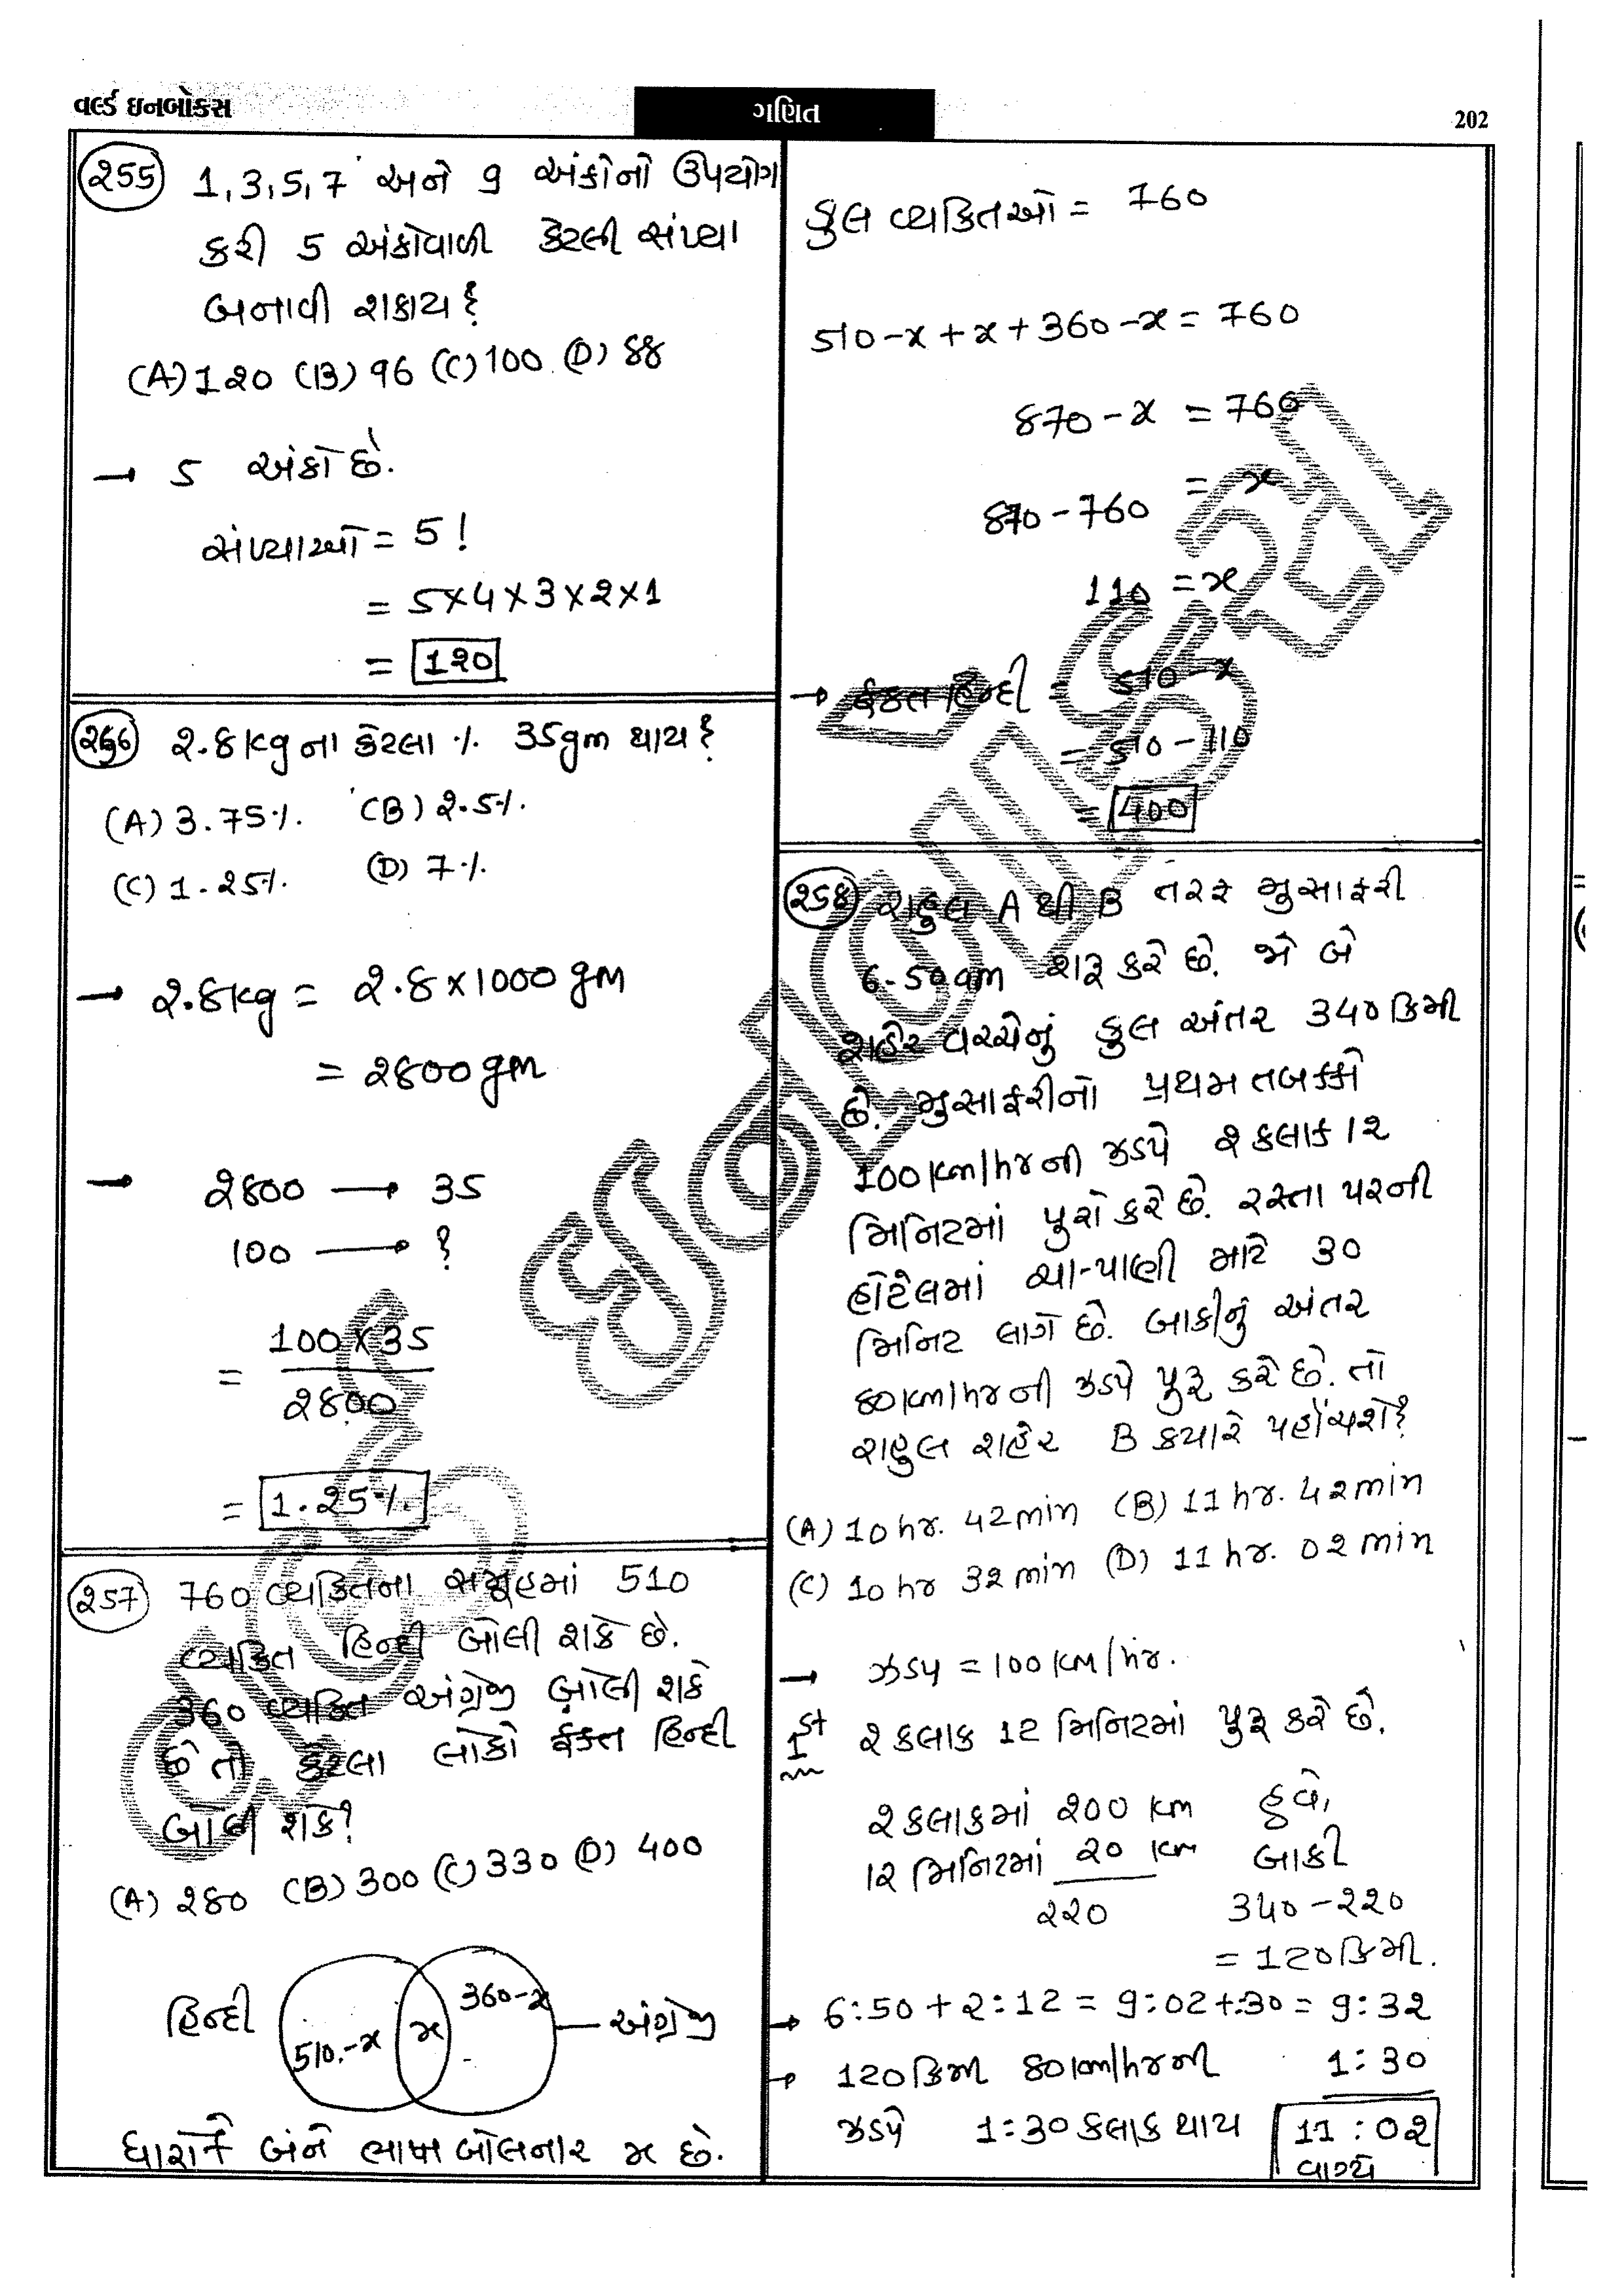 વર્લ્ડ ઇનબોક્સ
ગણિત
202
255 1,3,5,7 અને 9 અંકોનો ઉપયોગ
કરી 5 અંકોવાળી કેટલી સંખ્યા
બનાવી શકાય?
(A) 120 (B) 96 (C) 100 (D) 88
→ 5 અંકો છે.
સંખ્યાઓ = 5!
= 5×4×3×2×1
= 120
256 2.8kg ના કેટલા % 35gm થાય?
(A) 3.75% (B) 2.5%
(C) 1.25% (D) 7%
→ 2.8kg = 2.8×1000 gm
= 2800 gm
→ 2800 → 35
100 → ?
= 100×35
2800
= 1.25%
257 760 વ્યકિતના સમૂહમાં 510
વ્યકિત હિન્દી બોલી શકે છે.
360 વ્યકિત અંગ્રેજી બોલી શકે
છે તો કેટલા લોકો ફક્ત હિન્દી
બોલી શકે?
(A) 280 (B) 300 (C) 330 (D) 400
હિન્દી 510-x x 360-x અંગ્રેજી
ધારોકે બંને ભાષા બોલનાર x છે.
કુલ વ્યકિતઓ = 760
510-x+x+360-x = 760
870-x = 760
870-760 = x
110 = x
→ ફકત હિન્દી = 510-x
= 510-110
= 400
258 રાહુલ A થી B તરફ મુસાફરી
6-50am શરૂ કરે છે. જો બે
શહેર વચ્ચેનું કુલ અંતર 340 કિમી
છે. મુસાફરીનો પ્રથમ તબક્કો
100 km/hr ની ઝડપે 2 કલાક 12
મિનિટમાં પૂરો કરે છે. રસ્તા પરની
હોટેલમાં ચા-પાણી માટે 30
મિનિટ લાગે છે. બાકીનું અંતર
80 km/hr ની ઝડપે પુરૂ કરે છે. તો
રાહુલ શહેર B કયારે પહોંચશે?
(A) 10 hr. 42 min (B) 11 hr. 42 min
(C) 10 hr 32 min (D) 11 hr. 02 min
→ ઝડપ = 100 km/hr.
1st 2 કલાક 12 મિનિટમાં પુરૂ કરે છે.
2 કલાકમાં 200 km હવે,
12 મિનિટમાં 20 km બાકી
220 340-220
= 120 કિમી.
→ 6:50 + 2:12 = 9:02 + :30 = 9:32
→ 120 કિમી 80 km/hr ની 1:30
ઝડપે 1:30 કલાક થાય 11:02
વાગ્યે